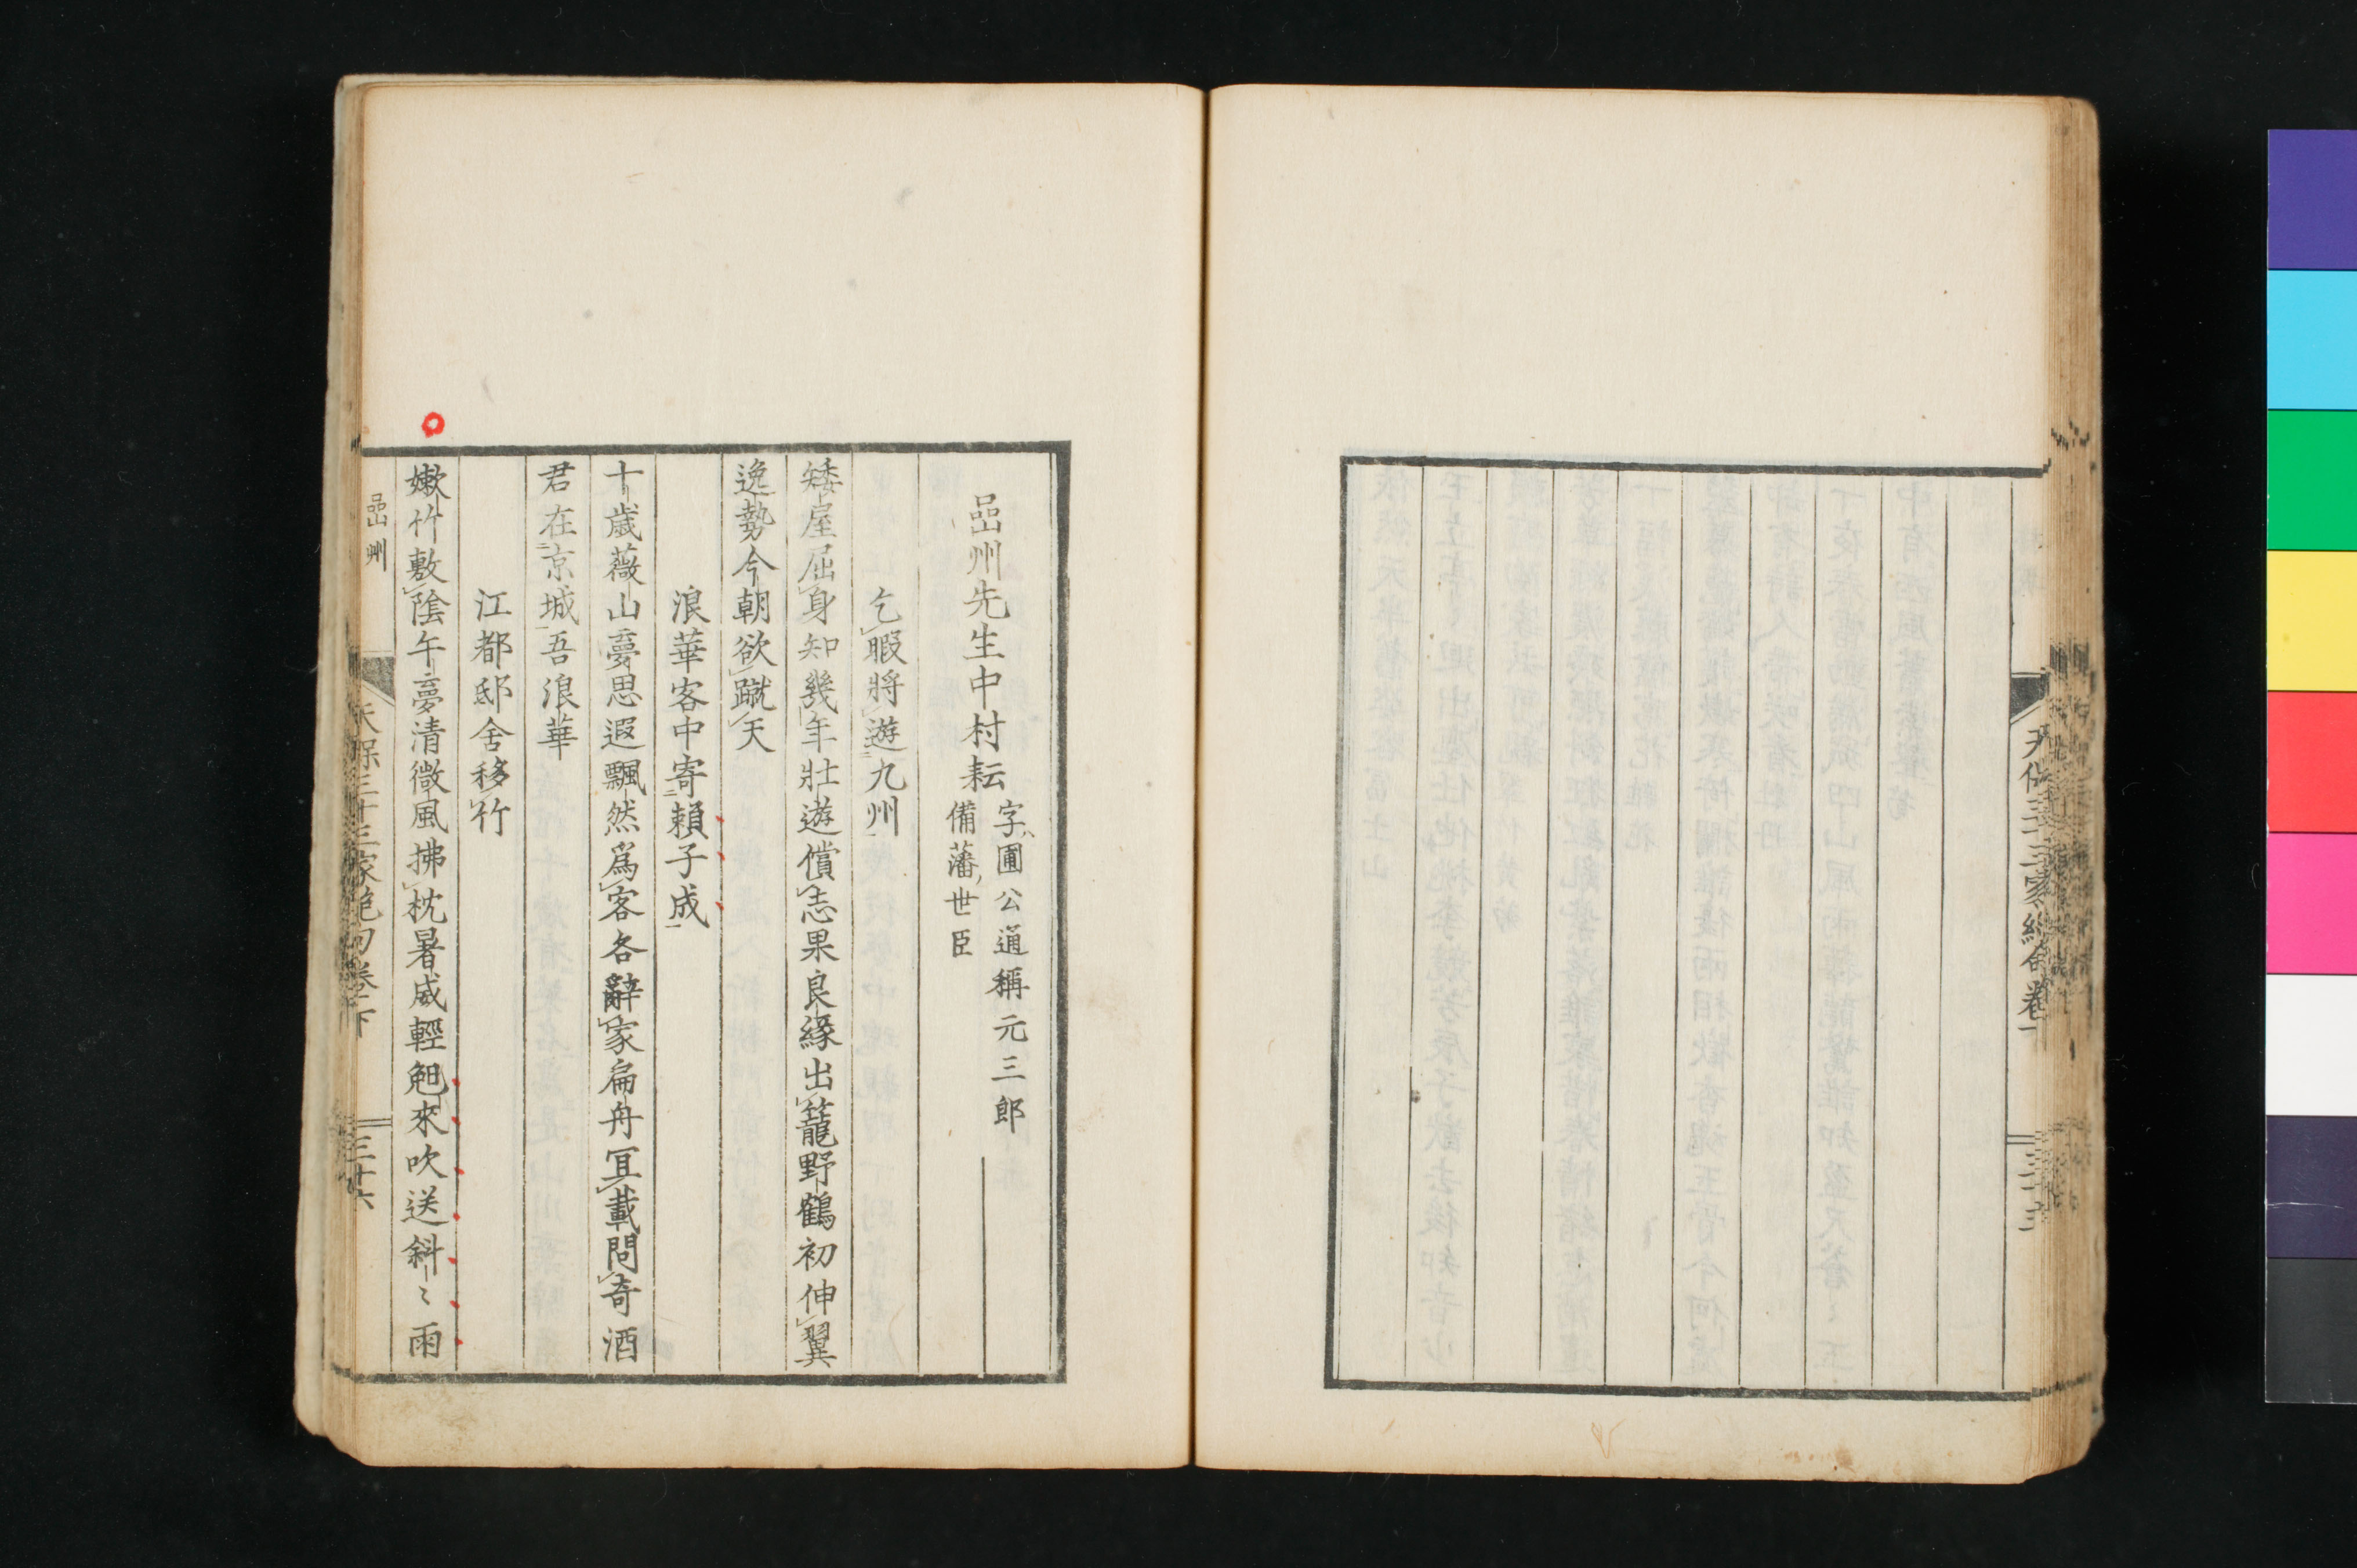 天保三十三家絶句卷下
三十三
嵓州先生中村耘
字圃公通稱元三郎
備藩世臣
乞暇將遊九州
矮屋屈身知幾年壯遊償志果良緣出籠野鶴初伸翼
逸勢今朝欲蹴天
浪華客中寄賴子成
十歲薇山夢思遐飄然爲客各辭家扁舟冝載問奇酒
君在京城吾浪華
江都邸舍移竹
嫰竹敷陰午夢清微風拂枕暑威輕*來吹送斜〻雨
嵓州
天保三十三家絶句卷下
三十六